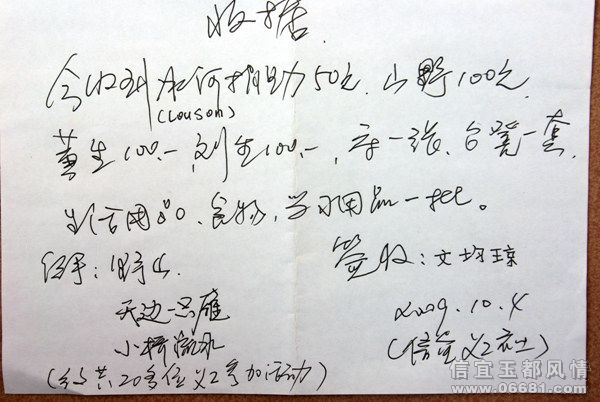 收据
今收到 水何捐助50元、山野100元
(Louson)
黄生100.—,刘生100.—,床一张、台凳一套,
生活用品、食物、学习用品一批。
经手:山野 签收:文均琼
天边一只雁 2009.10.4
小桥流水 (信宜义工社)
(约共20多位义工参加活动)
信宜玉都风情
www.06681.com